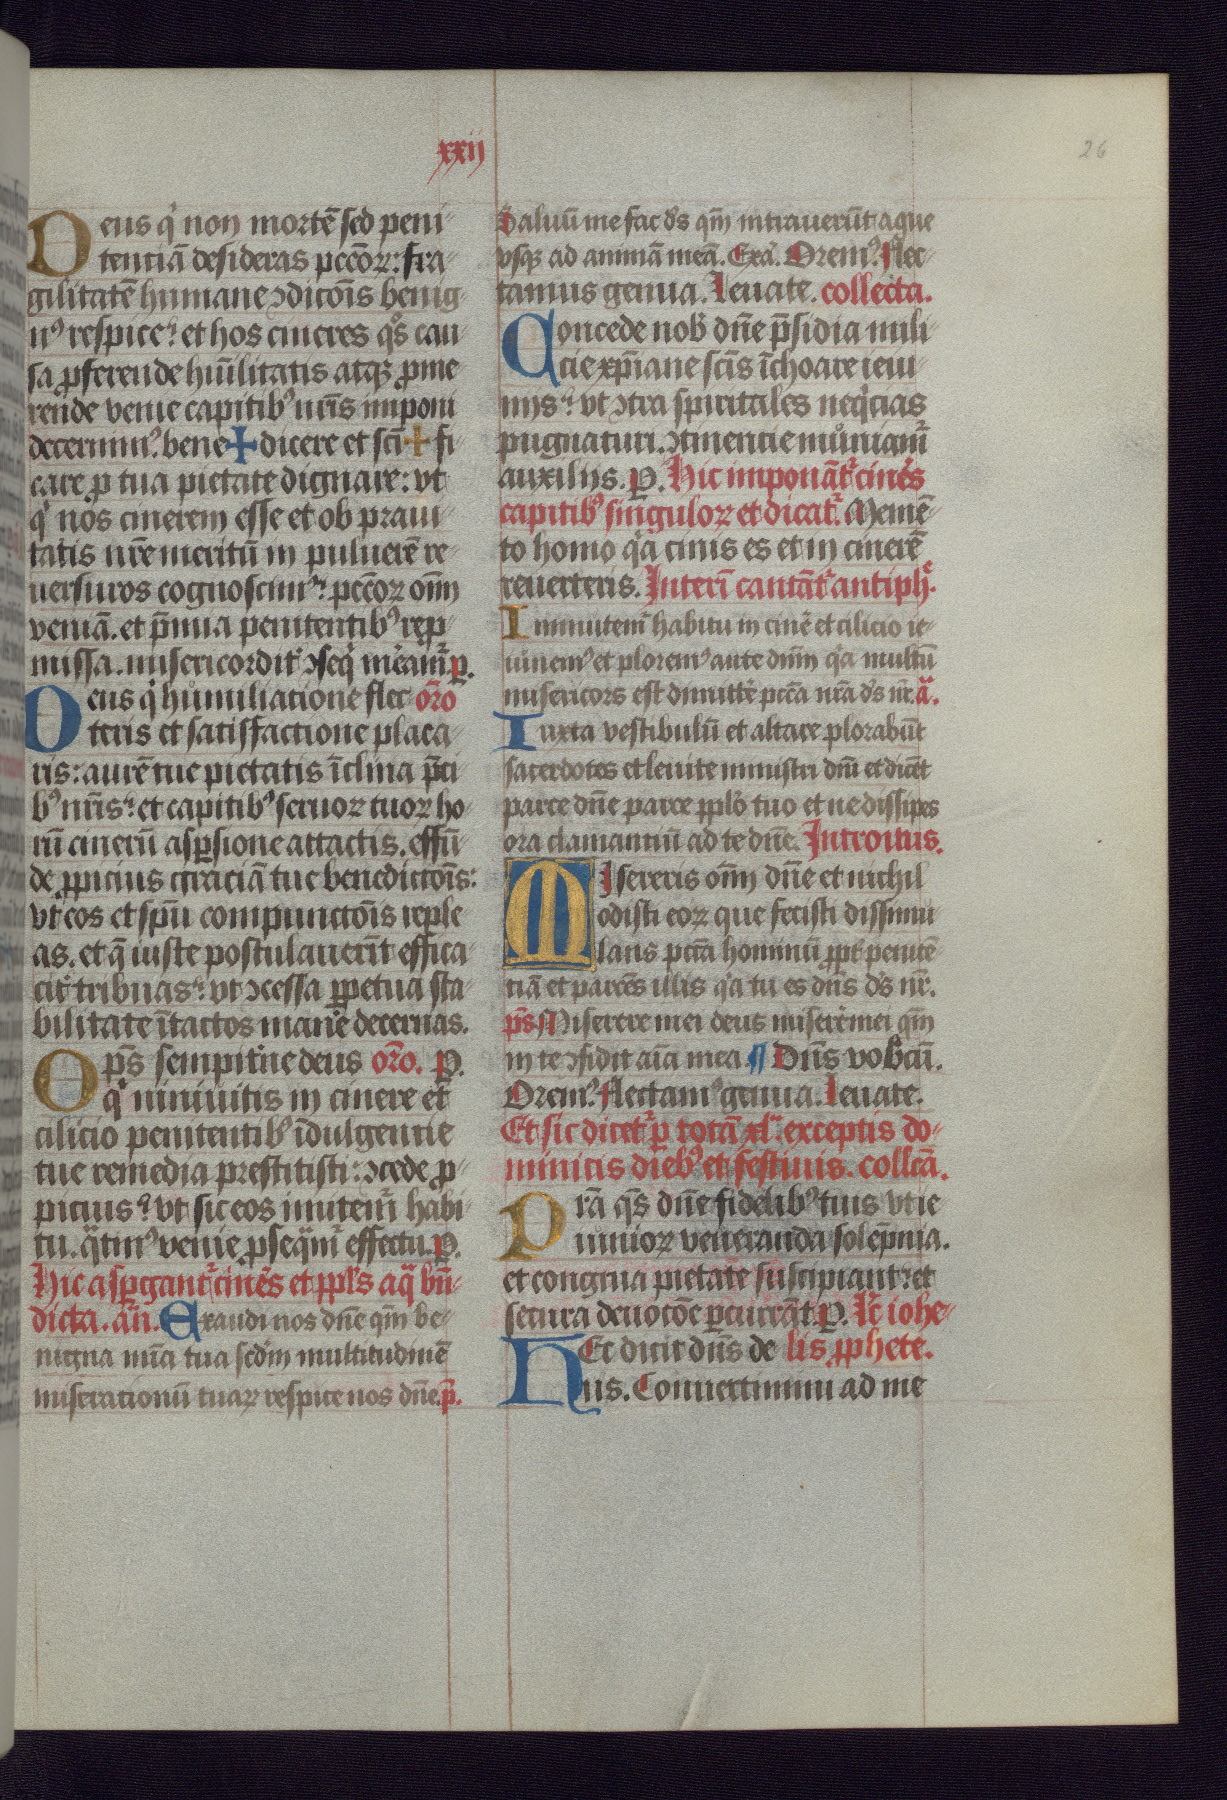 xxij
26
Deus q' non mortē sed peni-
tenciā desideras pccōꝝ: fra-
gilitatē humane ↄdicōīs benig-
nꝰ respice: et hos cineres qͦs cau-
sa ꝓferende hūīlitatis atqꝫ ꝓme-
rende venie capitibꝰ nr̄is imponi
decernimꝰ. bene✝dicere et scī✝fi-
care ꝓ tua pietate dignare: vt
q' nos cinerem esse et ob praui-
tatis nr̄e meritū in puluerē re-
uersuros cognoscimꝰ: pccōꝝ om̄
veniā. et p̄mia penitentibꝰ rep-
missa. misericordit' ↄseq' mēamr̄ p.
Deus q' humiliatione flec- or̄o
teris et satisfactione placa-
ris: aurē tue pietatis īclina p̄ci-
bꝰ nr̄is: et capitibꝰ seruoꝝ tuoꝝ ho-
rū cinerū asꝑsione attactis. effū-
de ꝓpicius graciā tue benedictōīs:
vt eos et spū compunctōīs reple-
as. et q̄ iuste postulauerīt effica-
cit' tribuas: vt ↄcessa ꝑpetua sta-
bilitate ītactos mane decernas.
Op̄s sempit'ne deus or̄o. P.
q' niniuitis in cinere et
cilicio penitentibꝰ īdulgentie
tue remedia prestitisti: ↄcede ꝓ-
picius: vt sic eos imitem̄ habi-
tu. q̄tinꝰ venie ꝓseq̄mr̄ effectu. P.
Hic asꝑgantr̄ cinēs et ppl's aq̄ bn̄-
dicta. an̄. Exaudi nos dn̄e qm̄ be-
nigna mīa tua scd̄m multitudinē
miserationū tuaꝝ respice nos dn̄e. p̄.
Saluū me fac d's qm̄ intrauerūt aque
vsqꝫ ad animā meā. Exa'. Oremꝰ. Flec-
tamus genua. Leuate. collecta.
Concede nob' dn̄e p̄sidia mili-
cie xp̄iane scīs īchoare ieiu-
nijs: vt ↄtra spiritales neq'cias
pugnaturi. ↄtinentie muniamr̄
auxilijs. P. Hic imponātr̄ cinēs
capitibꝰ singuloꝝ et dicatr̄. Memē-
to homo q'a cinis es et in cinerē
reuerteris. Interī cantātr̄ antiph'.
Immutemꝰ habitu in cinē et cilicio ie-
iunemꝰ et ploremꝰ ante dnm̄ q'a multū
misericors est dimittē pccā nr̄a d's nr̄. a.
Iuxta vestibulū et altare plorabūt
sacerdotes et leuite ministri dn̄i et dicēt
parce dn̄e parce pplo tuo et ne dissipes
ora clamantiū ad te dn̄e. Introitus.
MIsereris om̄ dn̄e et nichil
odisti eoꝝ que fecisti dissimu-
lans pccā hominū ꝓpt' penitē-
tiā et parcēs illis q'a tu es dn̄s d's nr̄.
p̄s Miserere mei deus miserē mei qm̄
in te ↄfidit aīa mea. ¶ Dn̄s vob'cū.
Oremꝰ. Flectamꝰ genua. Leuate.
Et sic dicet' ꝑ totā xl. exceptis do-
minicis diebꝰ et festiuis. collcā.
Prā q̄s dn̄e fidelibꝰ tuis vt ie-
iunioꝝ veneranda solēpnia.
et congrua pietate suscipiant: et
secura deuocōe ꝑcurrāt. P. Lc̄ iohe-
HEc dicit dn̄s de- lis ꝓphete.
us. Conuertimini ad me